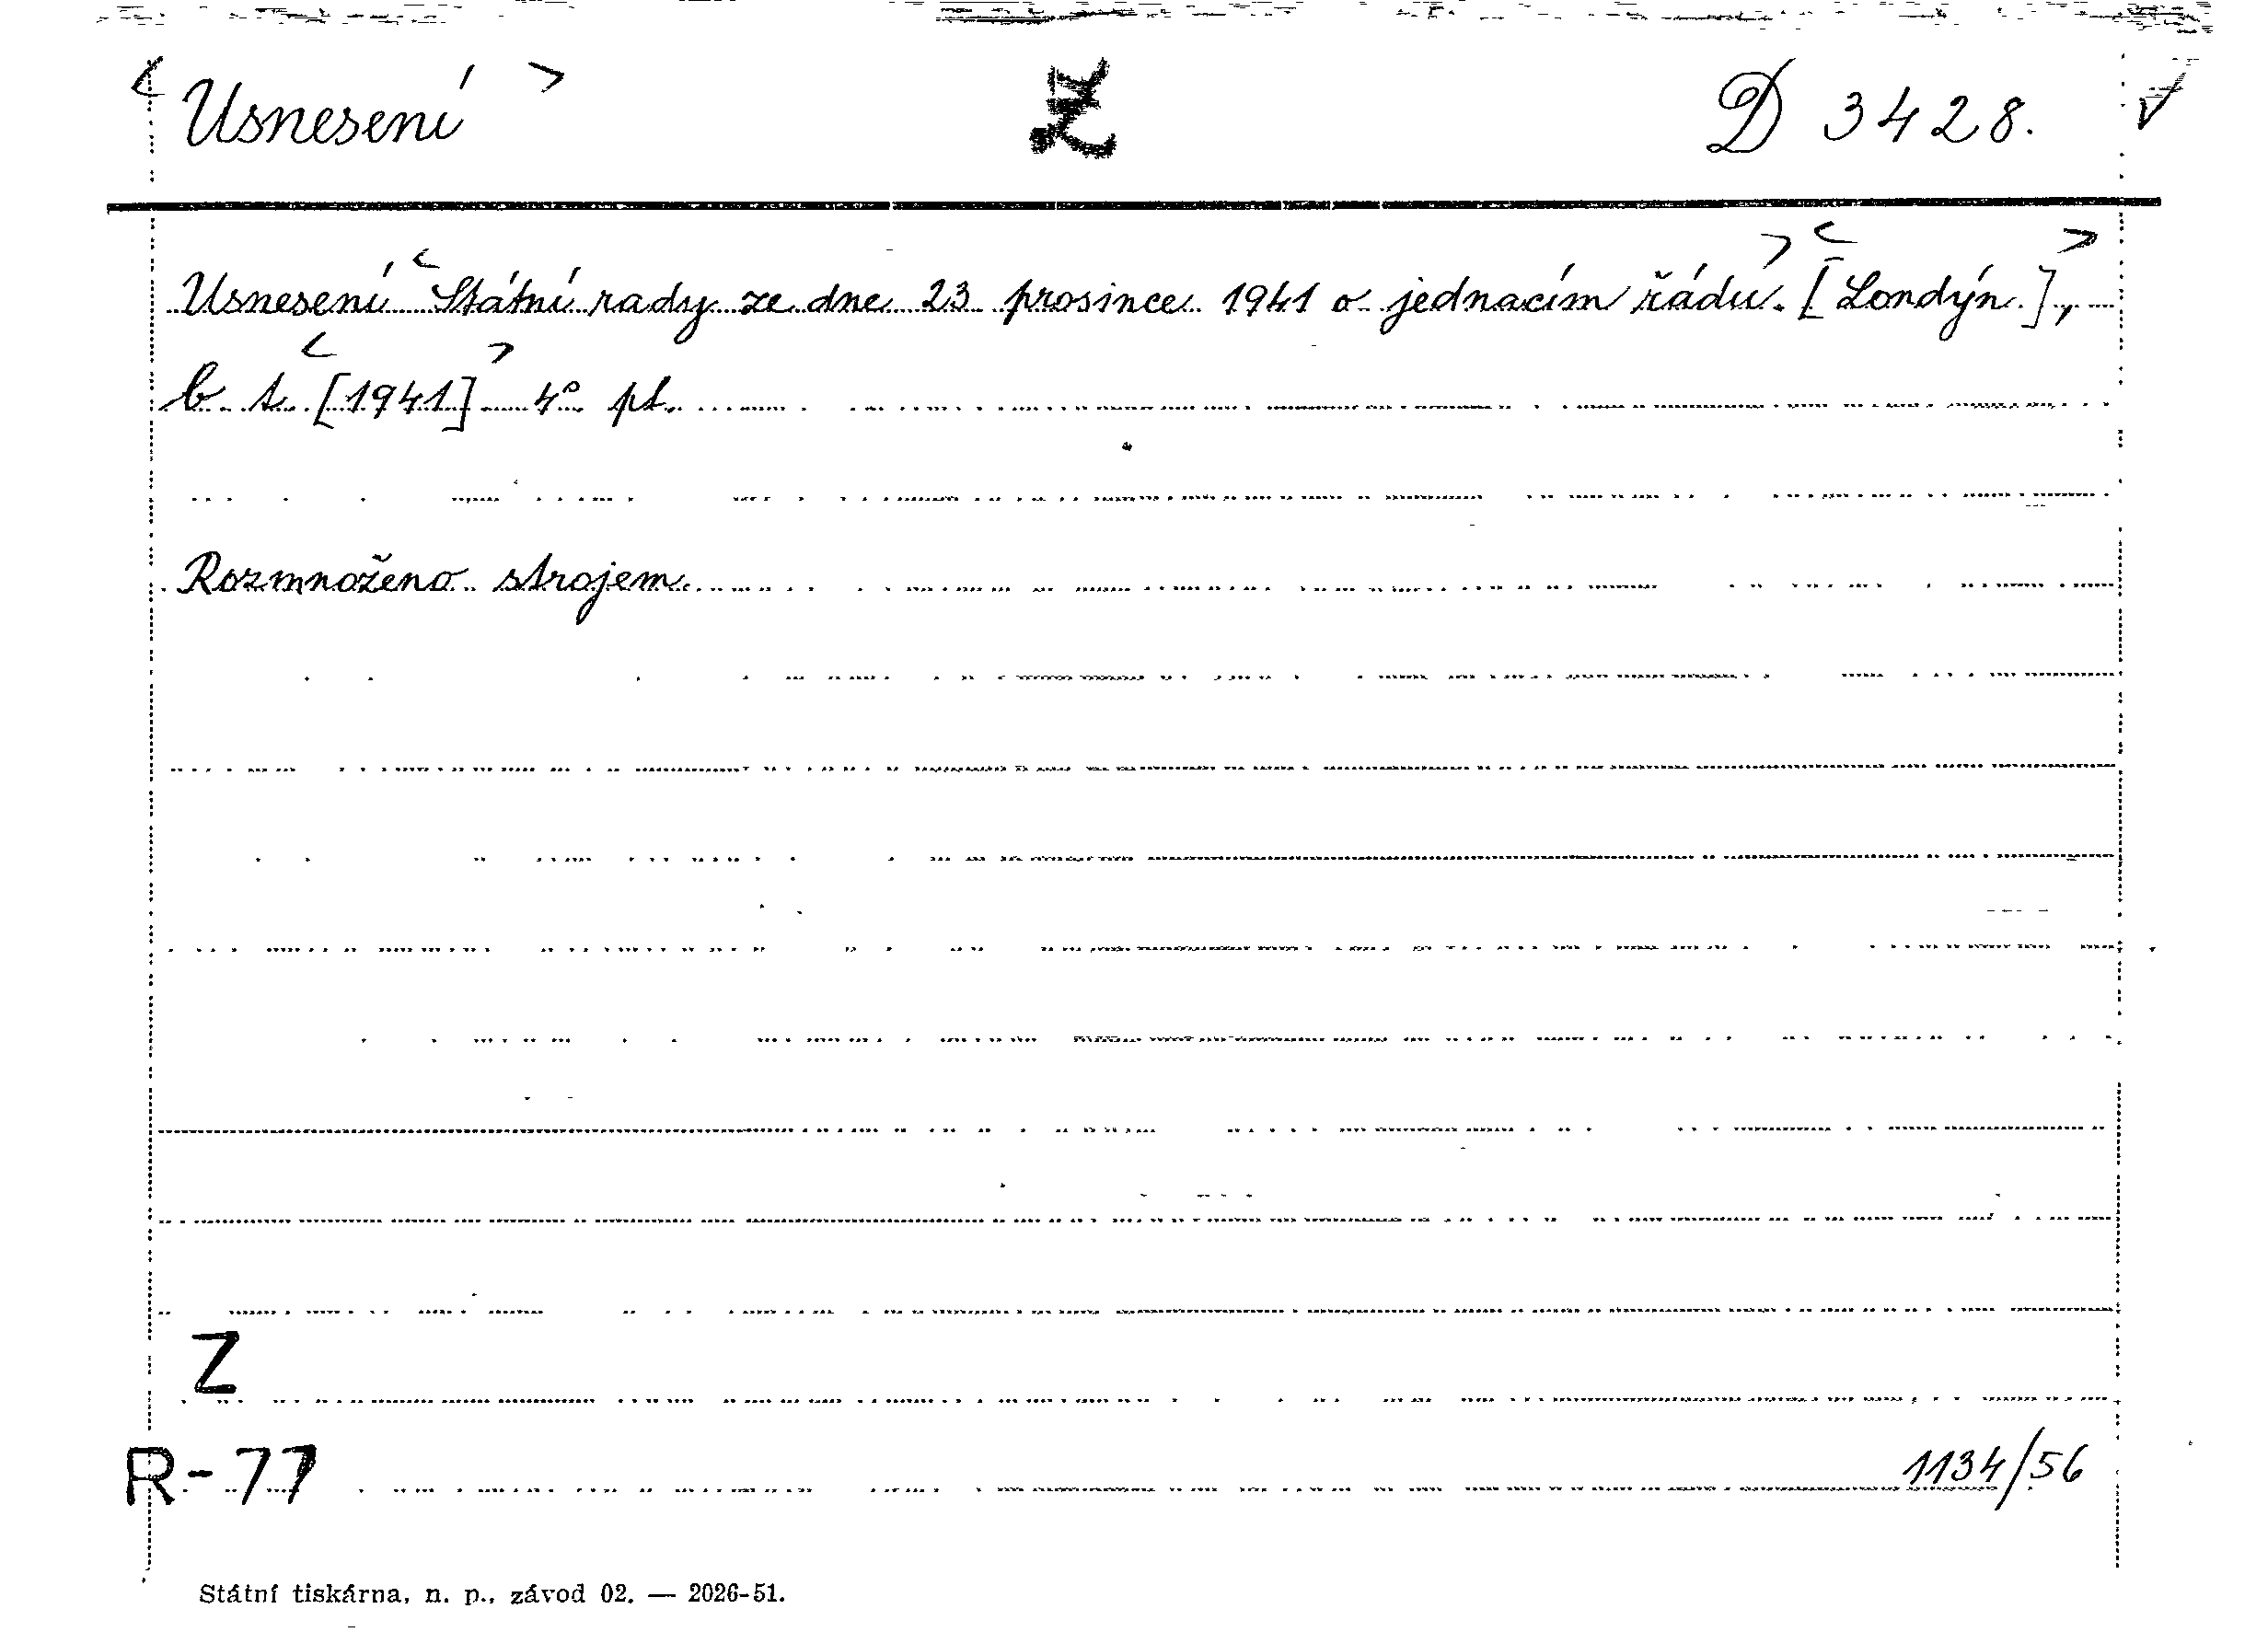 < Usnesení > Z D 3428. √
Usnesení <Státní rady ze dne 23 prosince 1941 o jednacím řádu>. <[Londýn.]>,
b. t. <[1941]> 4° pl.
Rozmnoženo strojem.
Z
R-77 1134/56
Státní tiskárna, n. p., závod 02. — 2026-51.